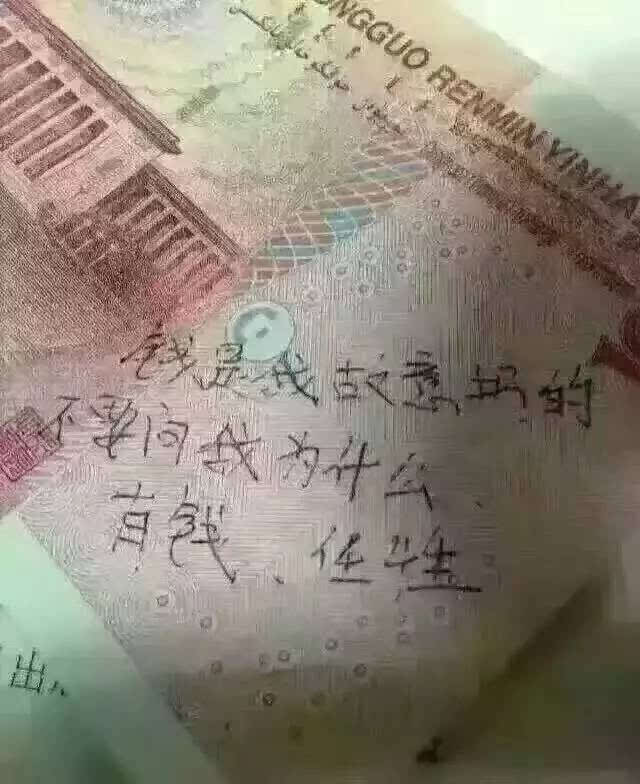 ZHONGGUO RENMIN YINHANG
钱是我故意撕的
不要问我为什么、
有钱、任性
出